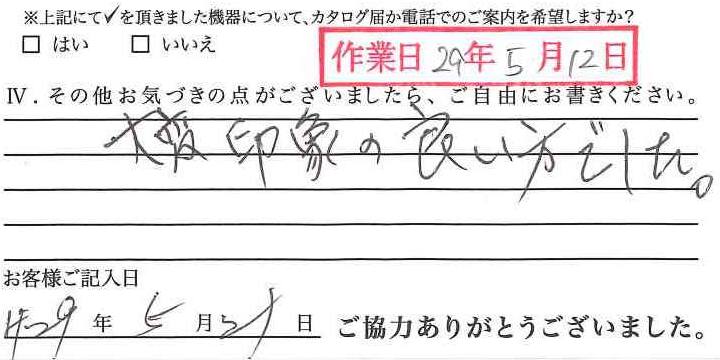 ※上記にて✓を頂きました機器について、カタログ届か電話でのご案内を希望しますか?
□ はい □ いいえ
作業日 29年 5月 12日
Ⅳ. その他お気づきの点がございましたら、ご自由にお書きください。
大変印象の良い方でした。
お客様ご記入日
H29年 5月21日 ご協力ありがとうございました。